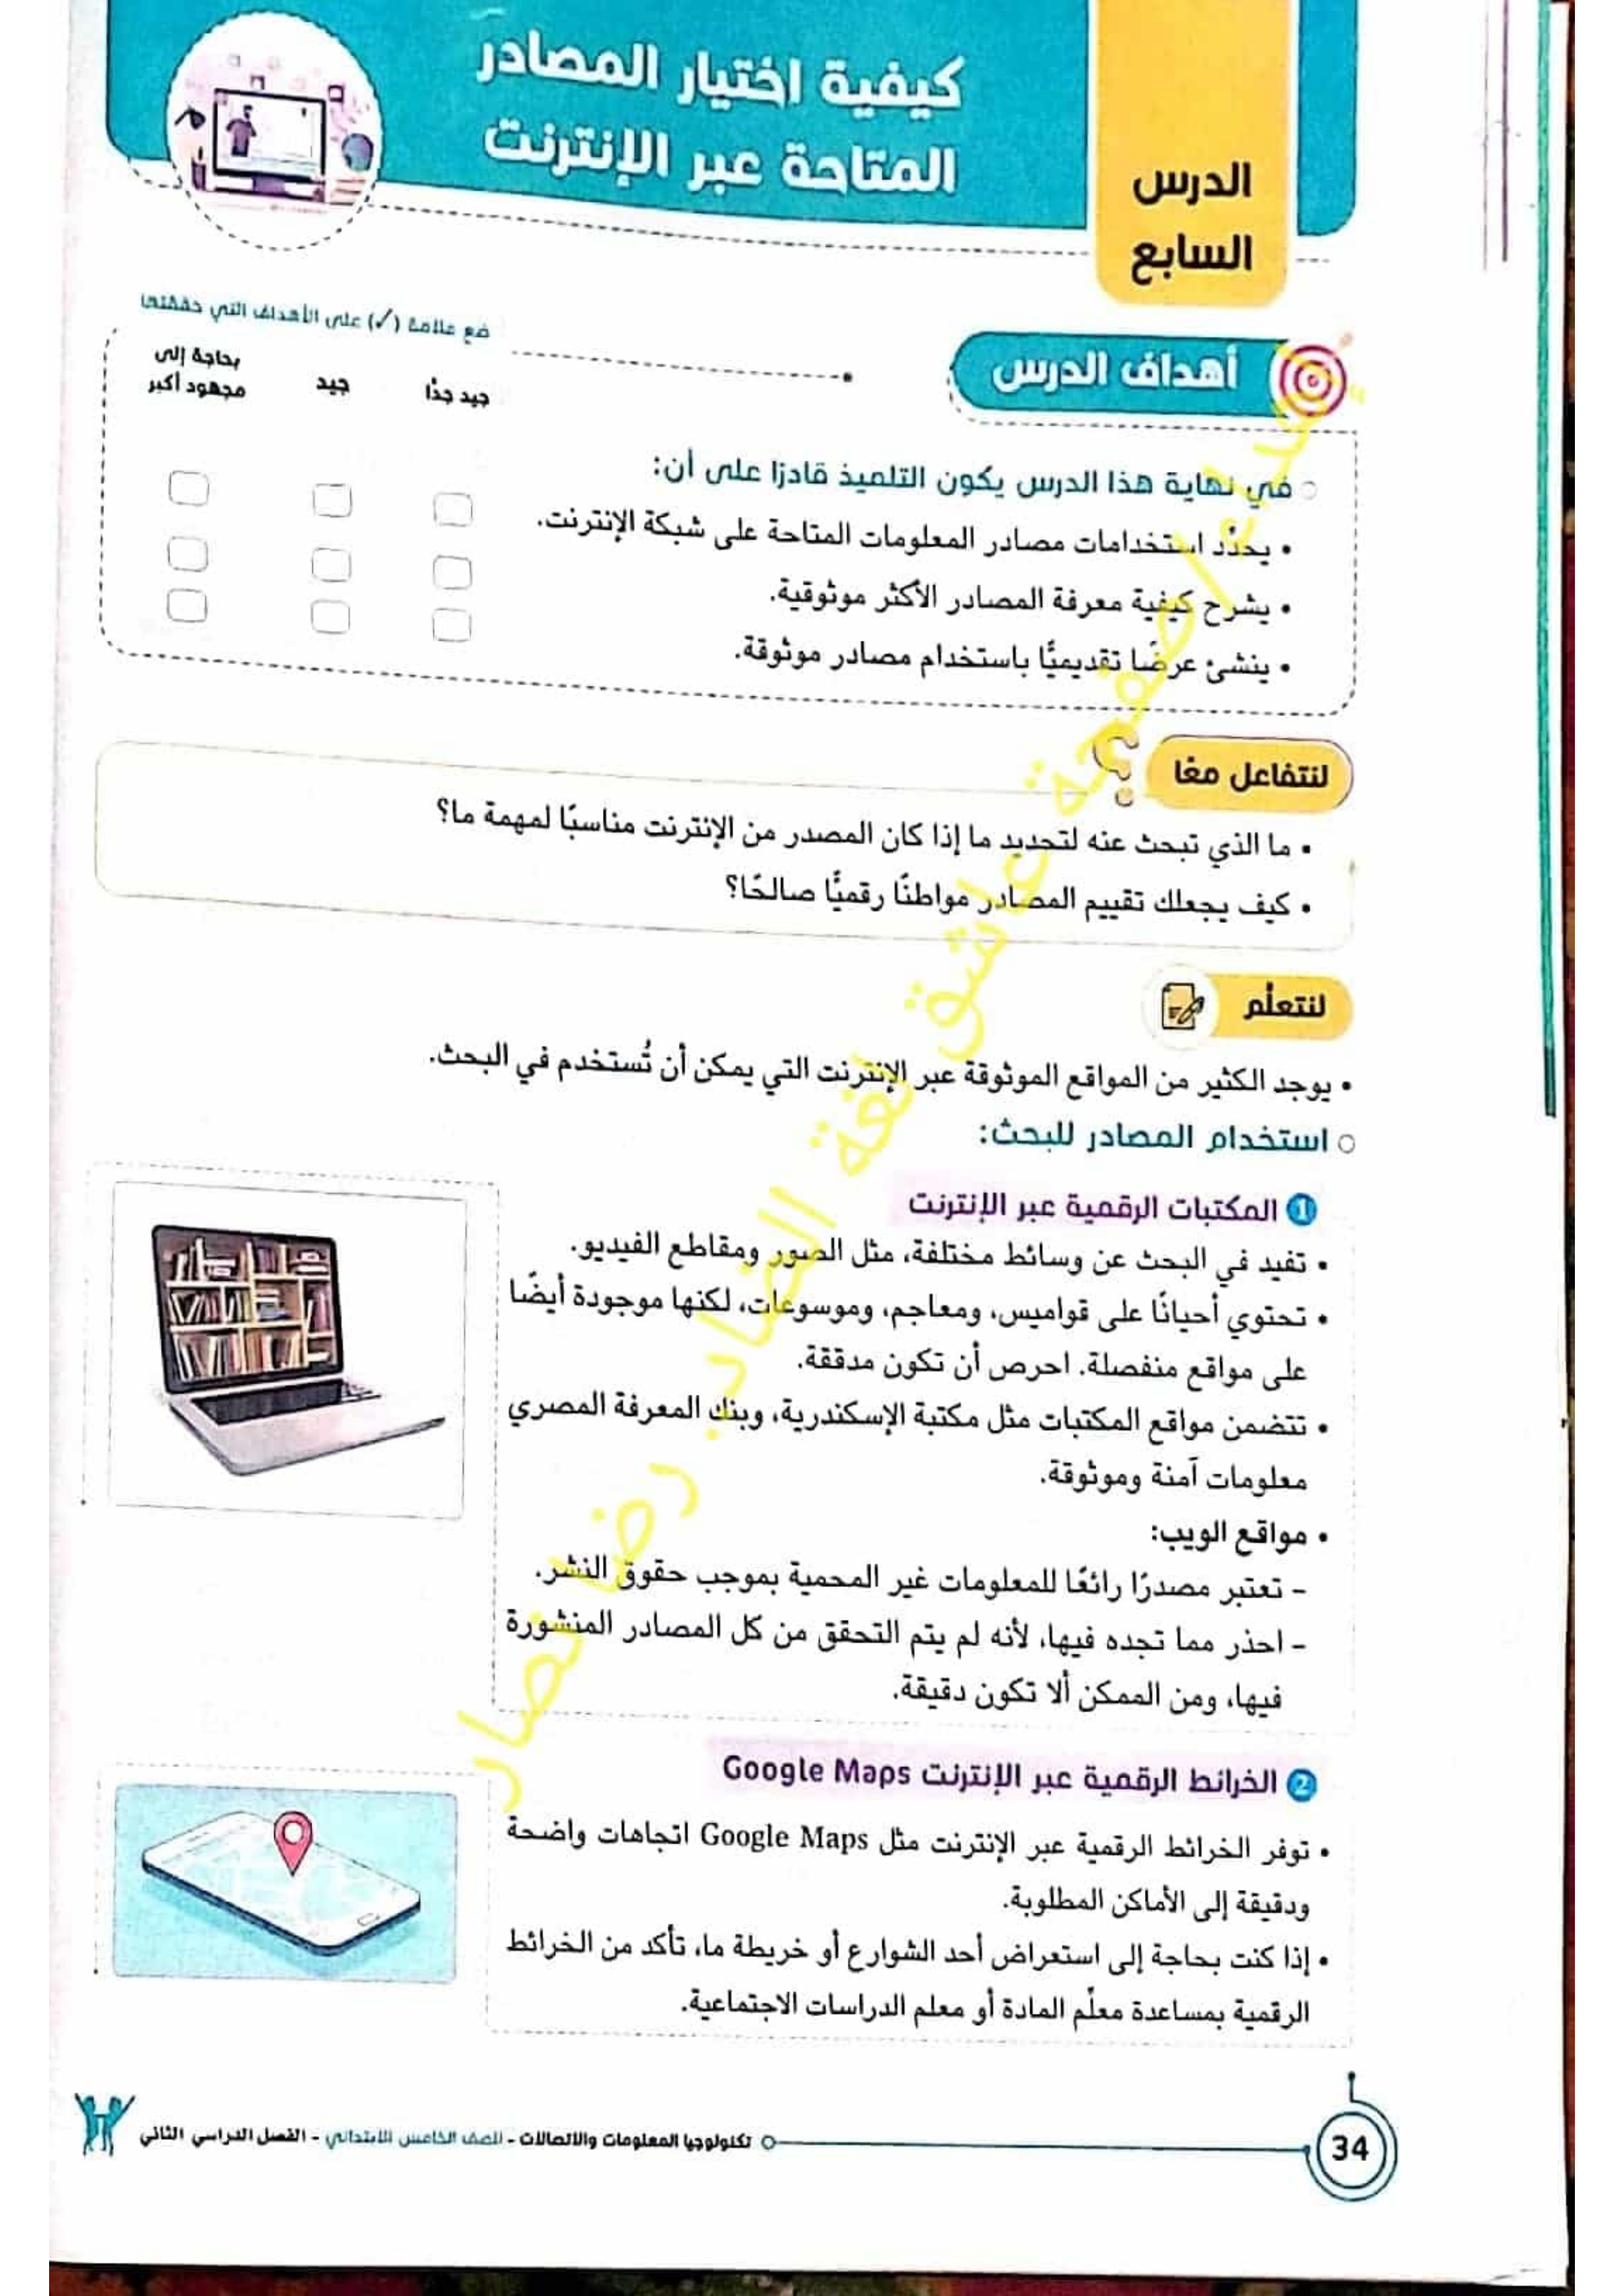 الدرس
السابع
كيفية اختيار المصادر
المتاحة عبر الإنترنت
أهداف الدرس
ضع علامة (✓) على الأهداف التي حققتها
جيد جدًا
جيد
بحاجة إلى
مجهود أكبر
في نهاية هذا الدرس يكون التلميذ قادرًا على أن:
• يحدّد استخدامات مصادر المعلومات المتاحة على شبكة الإنترنت.
• يشرح كيفية معرفة المصادر الأكثر موثوقية.
• ينشئ عرضًا تقديميًّا باستخدام مصادر موثوقة.
لنتفاعل معًا
• ما الذي تبحث عنه لتحديد ما إذا كان المصدر من الإنترنت مناسبًا لمهمة ما؟
• كيف يجعلك تقييم المصادر مواطنًا رقميًّا صالحًا؟
لنتعلّم
• يوجد الكثير من المواقع الموثوقة عبر الإنترنت التي يمكن أن تُستخدم في البحث.
استخدام المصادر للبحث:
1 المكتبات الرقمية عبر الإنترنت
• تفيد في البحث عن وسائط مختلفة، مثل الصور ومقاطع الفيديو.
• تحتوي أحيانًا على قواميس، ومعاجم، وموسوعات، لكنها موجودة أيضًا
على مواقع منفصلة. احرص أن تكون مدققة.
• تتضمن مواقع المكتبات مثل مكتبة الإسكندرية، وبنك المعرفة المصري
معلومات آمنة وموثوقة.
• مواقع الويب:
- تعتبر مصدرًا رائعًا للمعلومات غير المحمية بموجب حقوق النشر.
- احذر مما تجده فيها، لأنه لم يتم التحقق من كل المصادر المنشورة
فيها، ومن الممكن ألا تكون دقيقة.
2 الخرائط الرقمية عبر الإنترنت Google Maps
• توفر الخرائط الرقمية عبر الإنترنت مثل Google Maps اتجاهات واضحة
ودقيقة إلى الأماكن المطلوبة.
• إذا كنت بحاجة إلى استعراض أحد الشوارع أو خريطة ما، تأكد من الخرائط
الرقمية بمساعدة معلّم المادة أو معلم الدراسات الاجتماعية.
34
تكنولوجيا المعلومات والاتصالات - للصف الخامس الابتدائي - الفصل الدراسي الثاني
صفحة عاشق لغة الضاد. رضا نصار